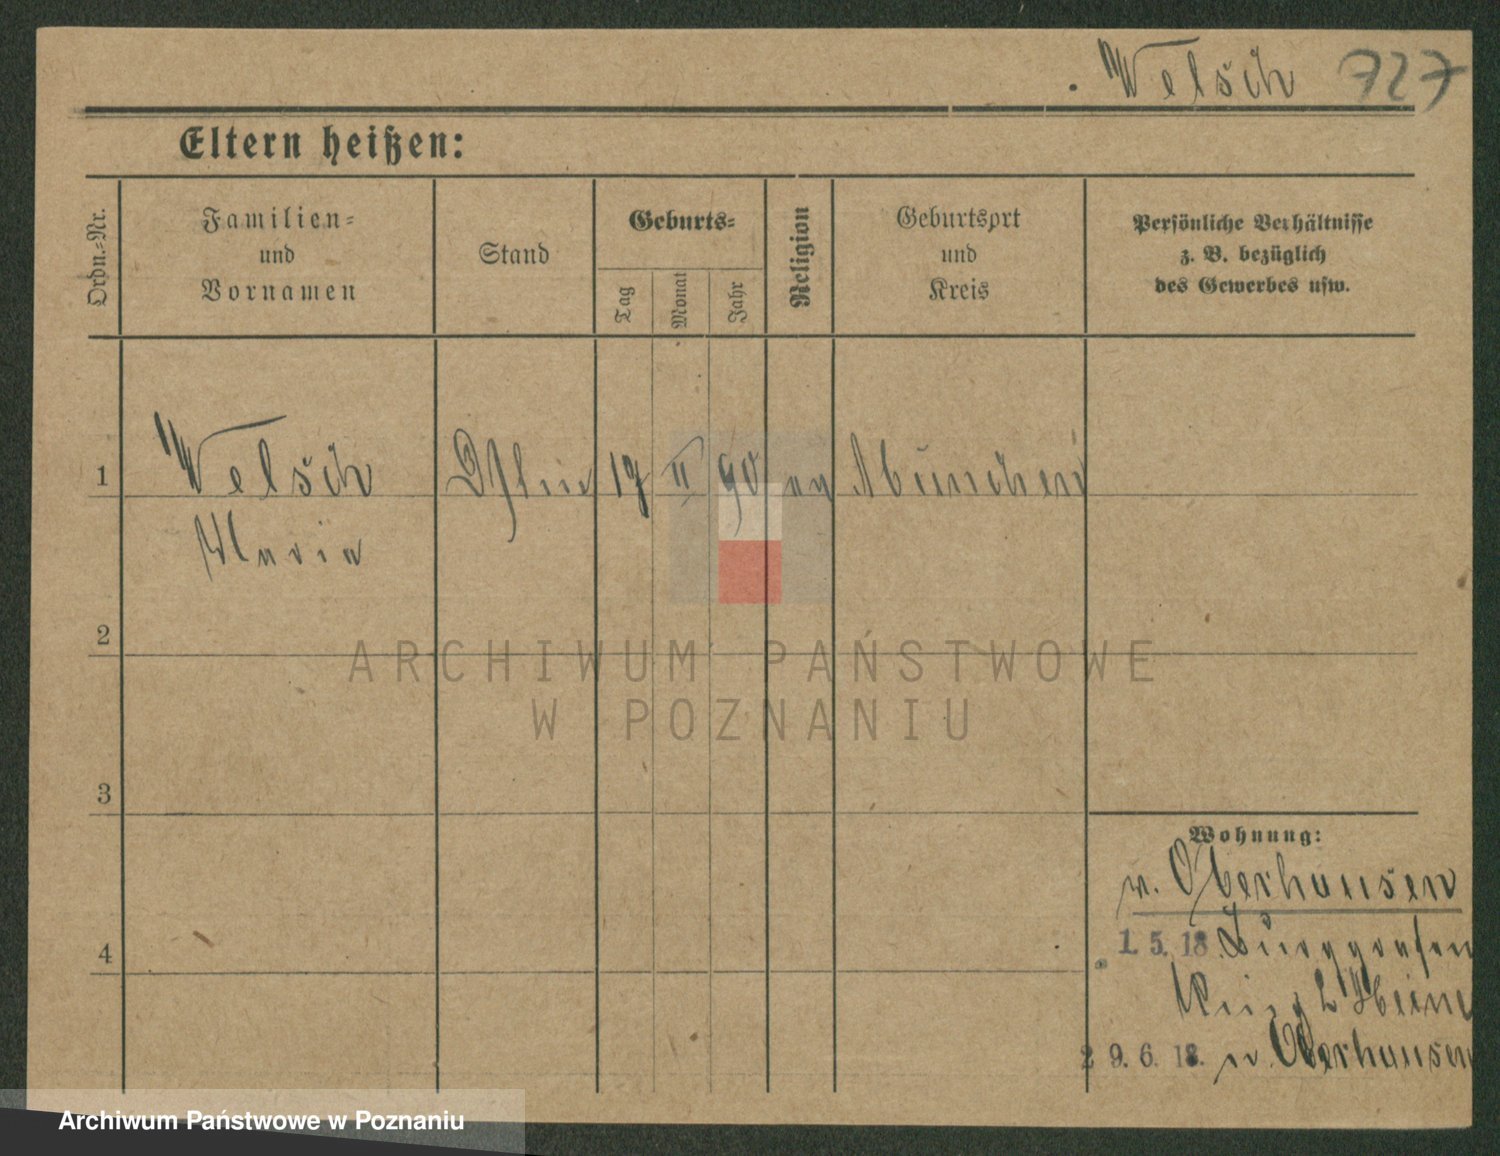 Welsch 727
Eltern heißen:
Ordn.=Nr.
Familien=
und
Vornamen
Stand
Geburts=
Tag
Monat
Jahr
Religion
Geburtsort
und
Kreis
Persönliche Verhältnisse
z. B. bezüglich
des Gewerbes usw.
1 Welsch 17 II 90 München
Maria
2
3
4
Wohnung:
n. Oberhausen
1. 5. 18. Burggrafen
Ring 2
29. 6. 18. n Oberhausen
ARCHIWUM PAŃSTWOWE
W POZNANIU
Archiwum Państwowe w Poznaniu